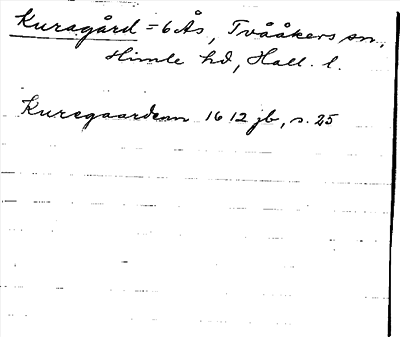 Kuragård = 6 Ås, Tvååkers sn,
Himle hd, Hall. l.
Kuregaardenn 1612 jb, s. 25